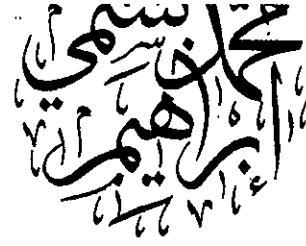 محمد سمي
إبراهيم